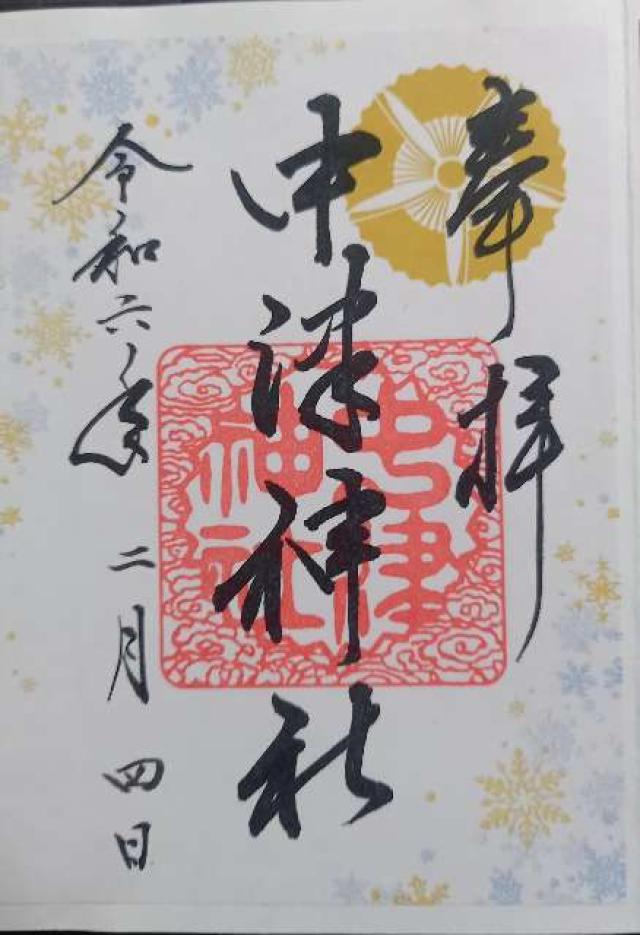 奉拝
中津神社
中津
神社
令和六年 二月四日